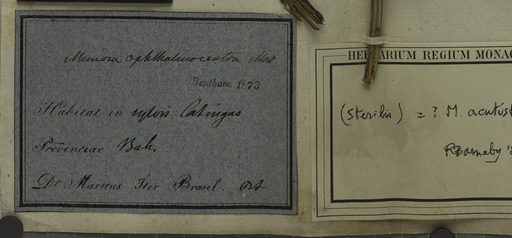 Mimosa ophthalmocentra Mart
Bentham. 1873
Habitat in sylvis Catingas
Provinciae Bah.
Dr. Martius Iter Brasil.
HERBARIUM REGIUM MONAC
(sterilis) = ? M. acutist
RBarneby